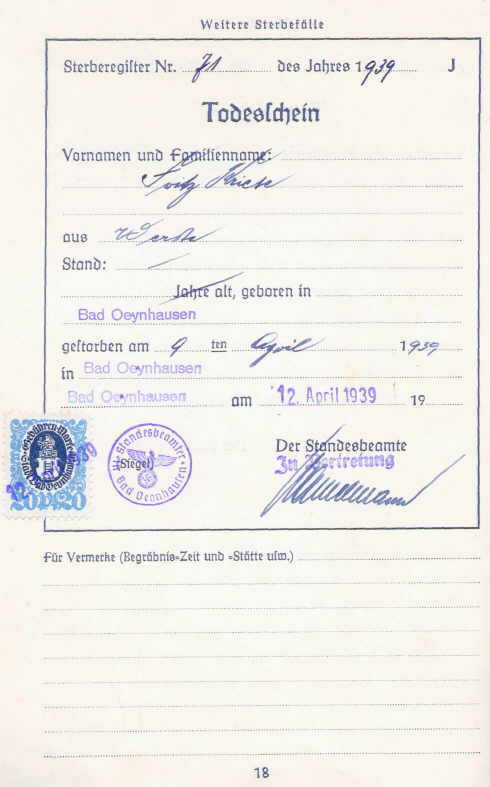 Weitere Sterbefälle
Sterberegister Nr. 71 des Jahres 1939 J
Todesschein
Vornamen und Familienname:
Fritz
aus Werste
Stand: —
Jahre alt, geboren in
Bad Oeynhausen
gestorben am 9 ten April 1939
in Bad Oeynhausen
Bad Oeynhausen am 12. April 1939 19
Der Standesbeamte
(Siegel)
In Vertretung
Standesbeamter
Bad Oeynhausen
Gebühren-Marke
20 Pf 20
Für Vermerke (Begräbnis=Zeit und =Stätte usw.)
18